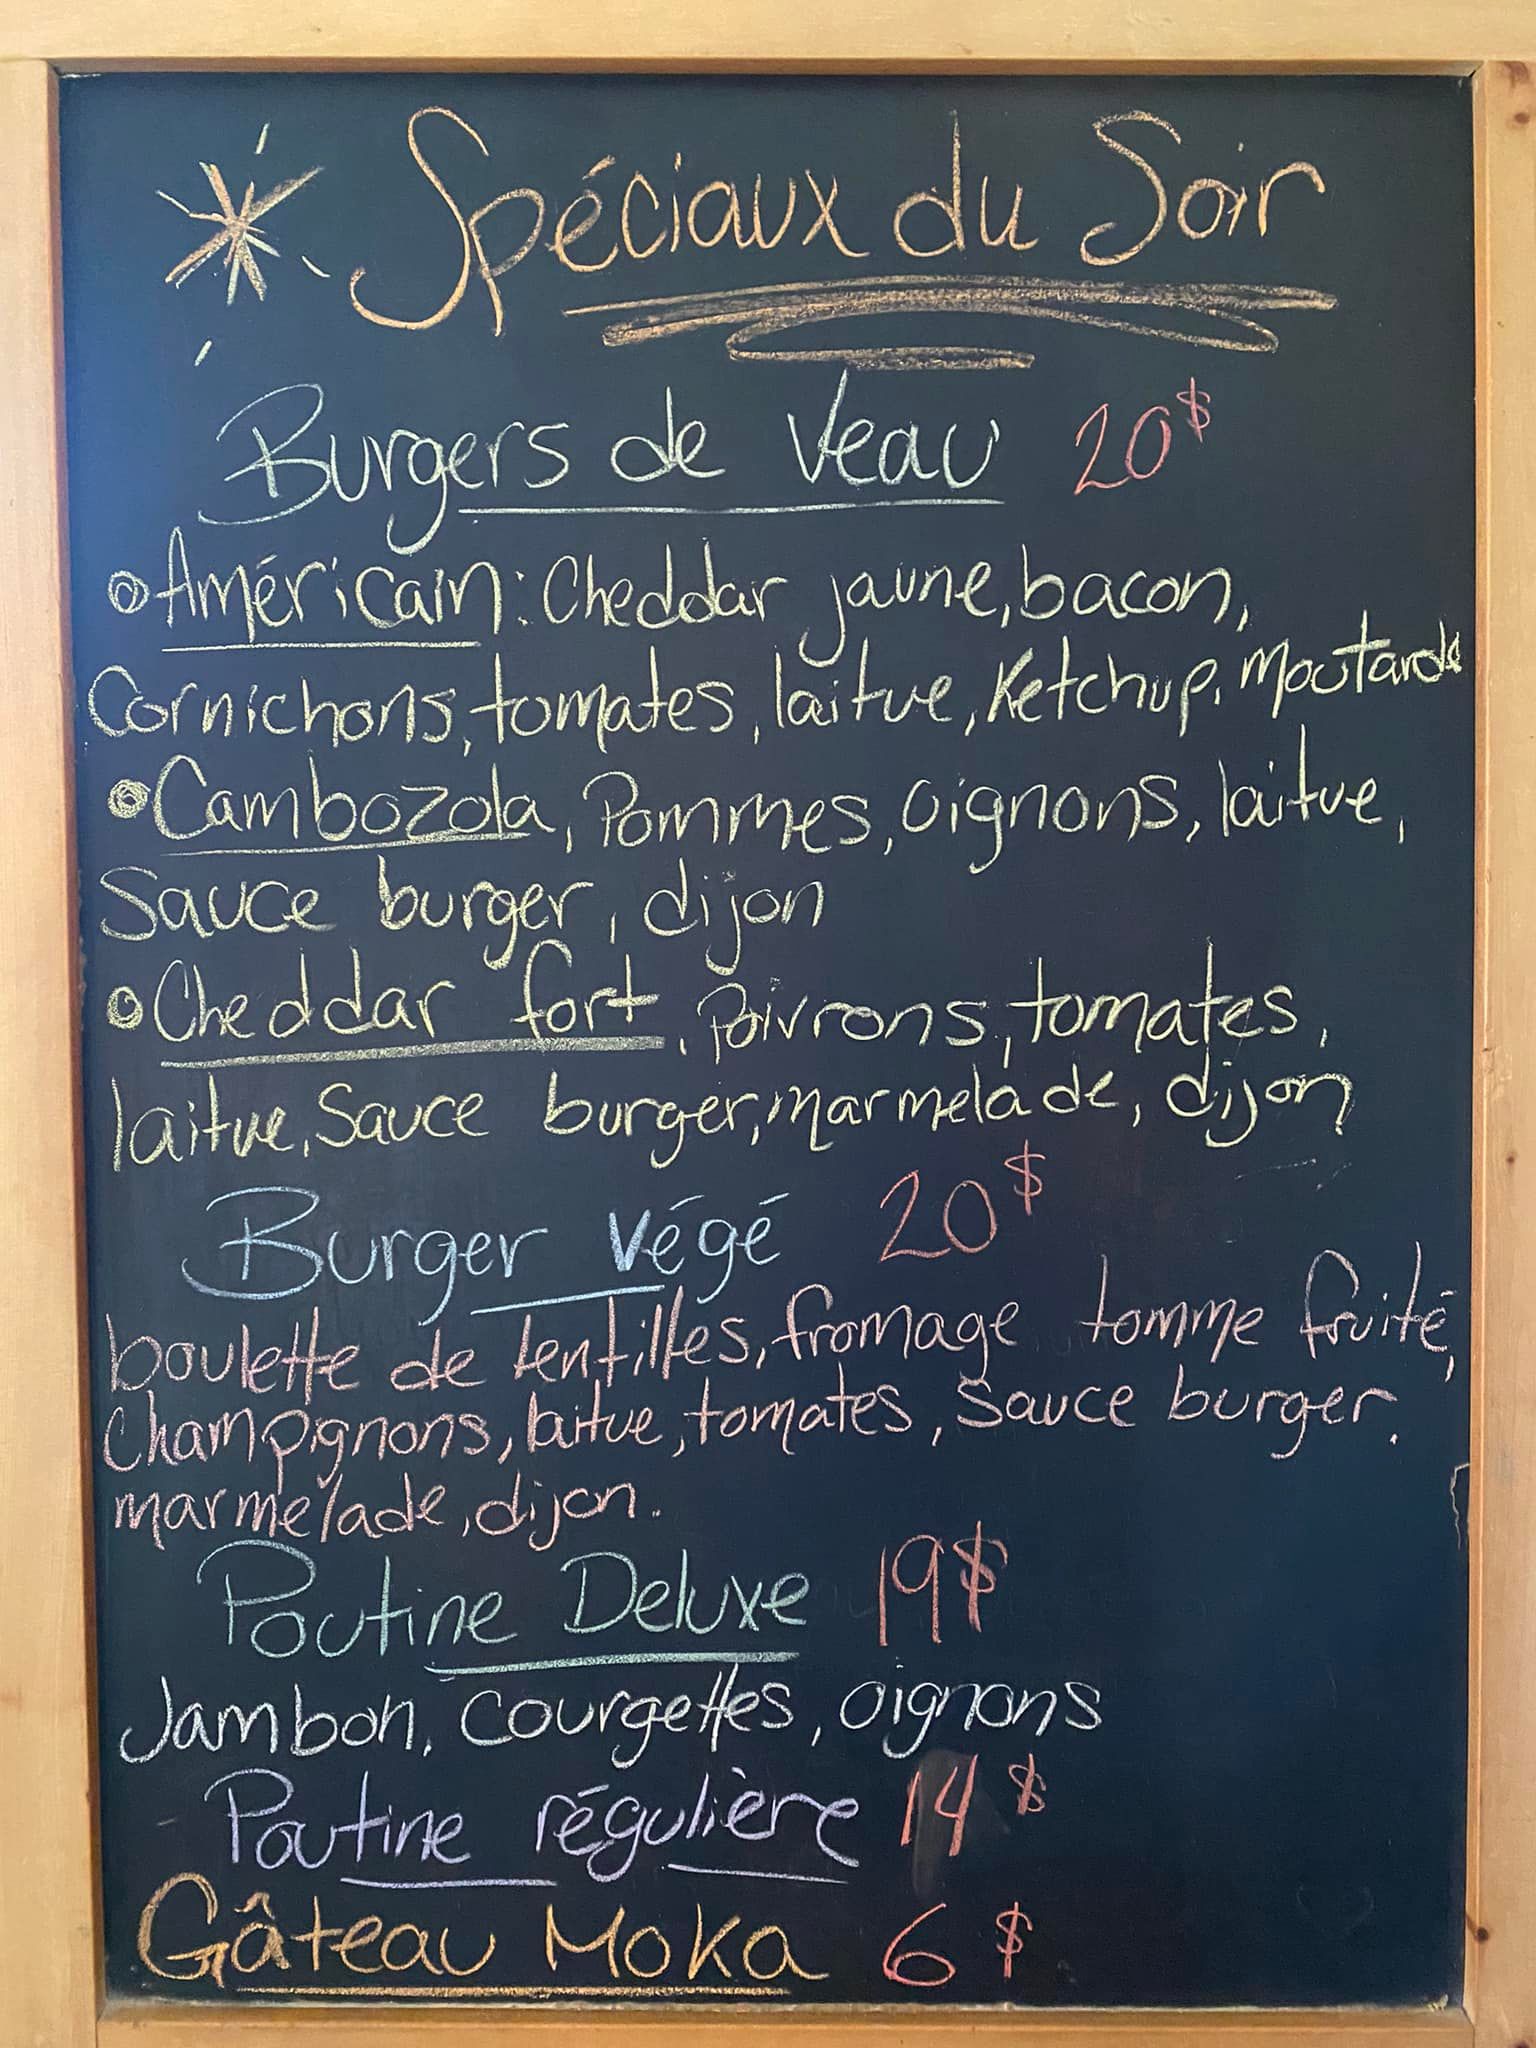 Spéciaux du Soir
Burgers de Veau 20$
Américain: Cheddar jaune, bacon,
Cornichons, tomates, laitue, Ketchup, moutarde
Cambozola, Pommes, oignons, laitue,
Sauce burger, dijon
Cheddar fort, Poivrons, tomates,
laitue, Sauce burger, marmelade, dijon
Burger végé 20$
boulette de lentilles, fromage tomme fruité,
Champignons, laitue, tomates, sauce burger,
marmelade, dijon.
Poutine Deluxe 19$
Jambon, courgettes, oignons
Poutine régulière 14$
Gâteau Moka 6$